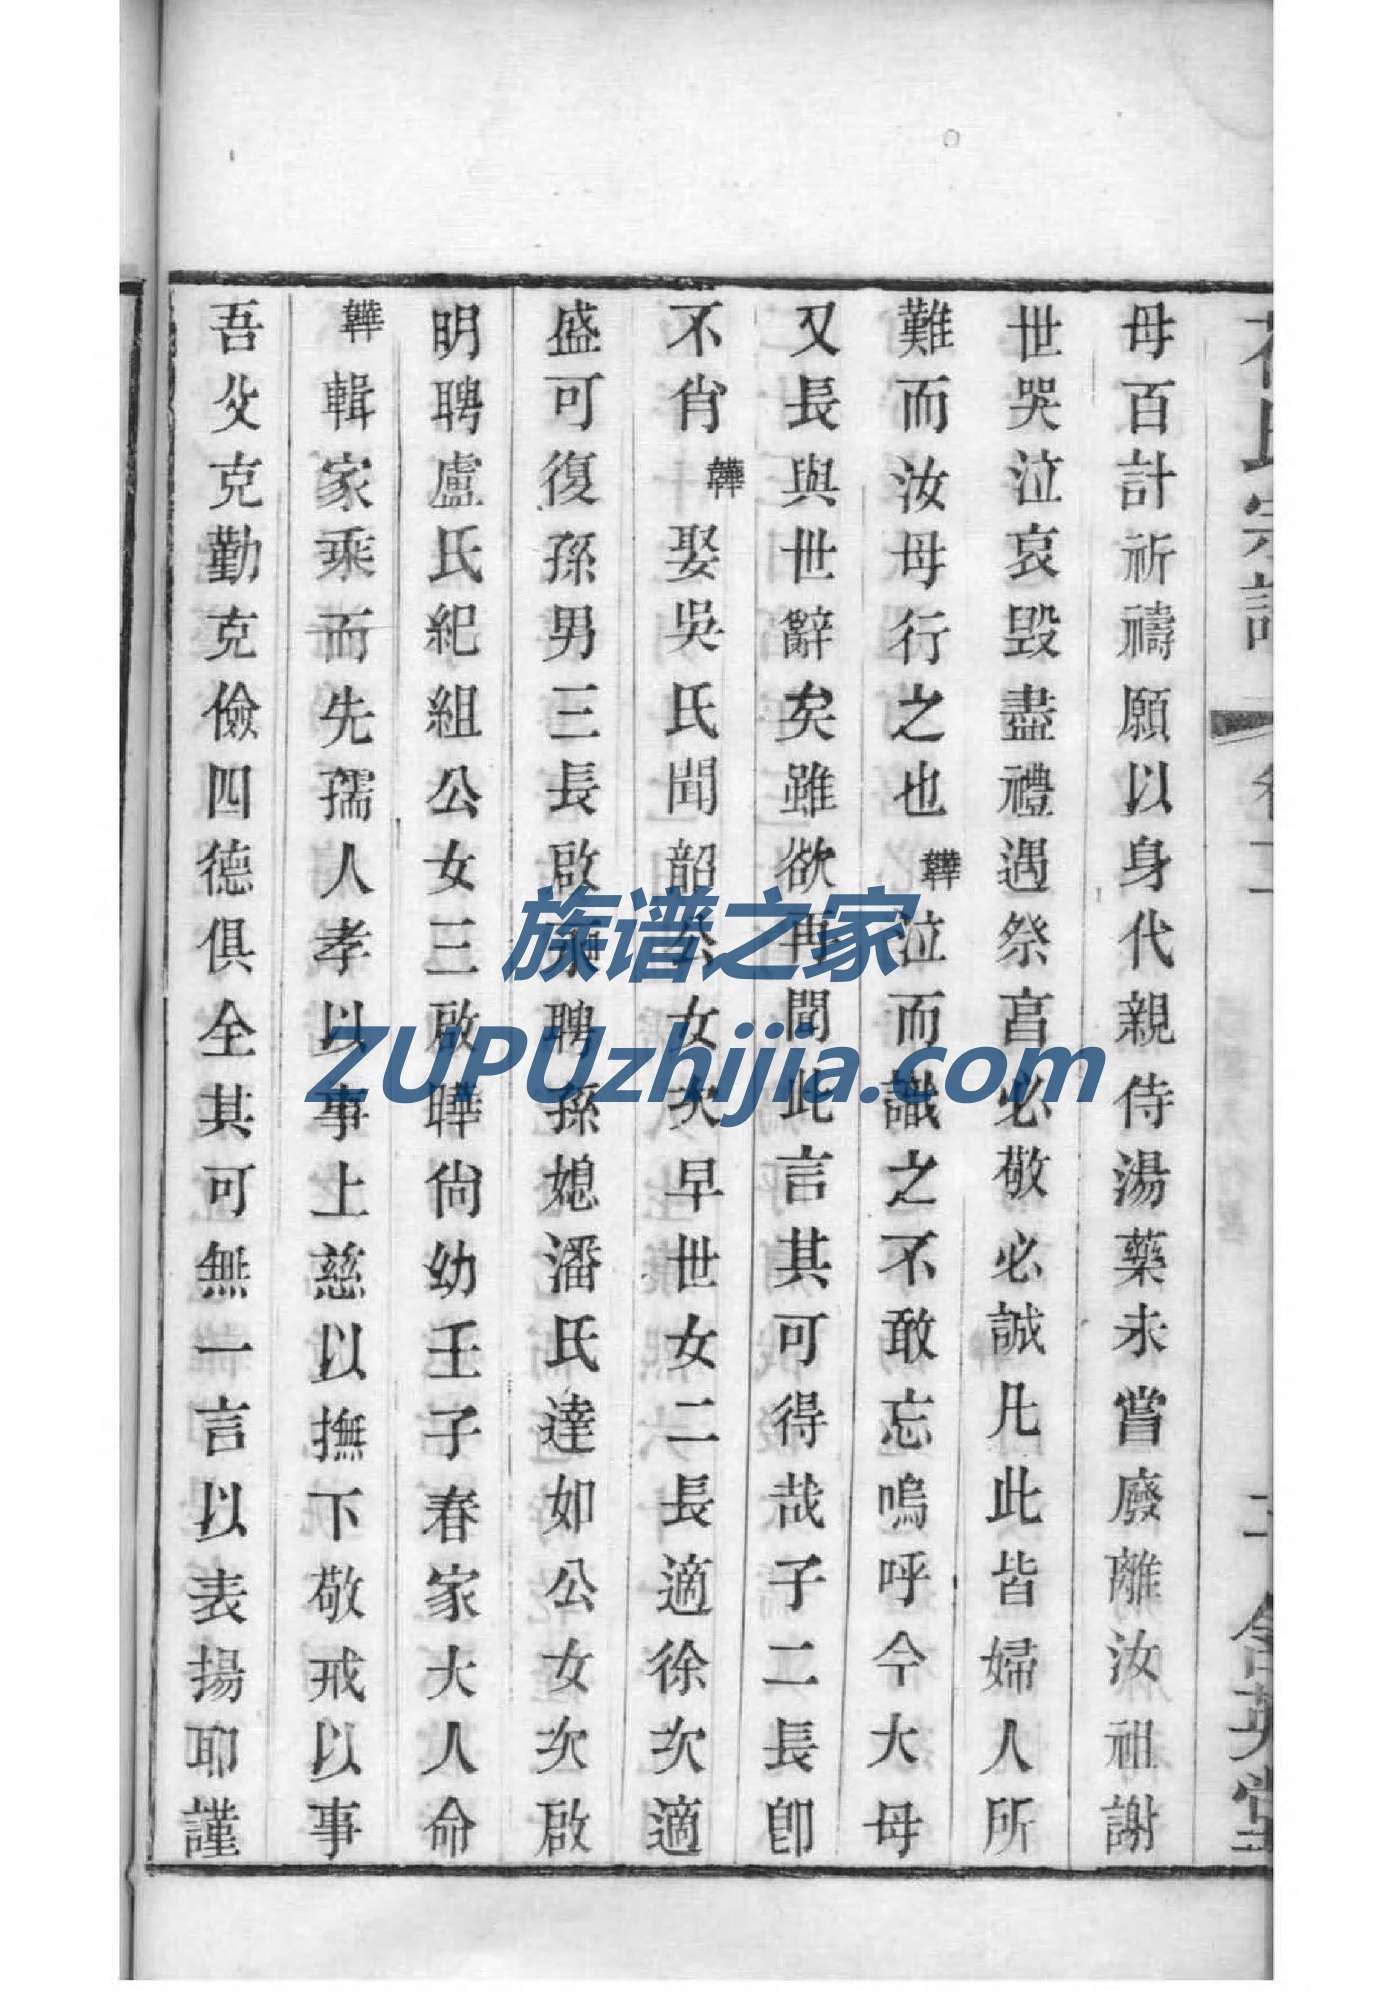 母百計祈禱願以身代親侍湯藥未嘗廢離汝祖謝
世哭泣哀毀盡禮遇祭亯必敬必誠凡此皆婦人所
難而汝母行之也韡泣而識之不敢忘嗚呼今大母
又長與世辭矣雖欲再聞此言其可得哉子二長卽
不肖韡娶吳氏聞韶公女次早世女二長適徐次適
盛可復孫男三長啟聘孫媳潘氏達如公女次啟
明聘盧氏紀組公女三啟曄尙幼壬子春家大人命
韡輯家乘而先孺人孝以事上慈以撫下敬戒以事
吾父克勤克儉四德俱全其可無一言以表揚耶謹
氏宗譜
英堂
族谱之家
ZUPUzhijia.com